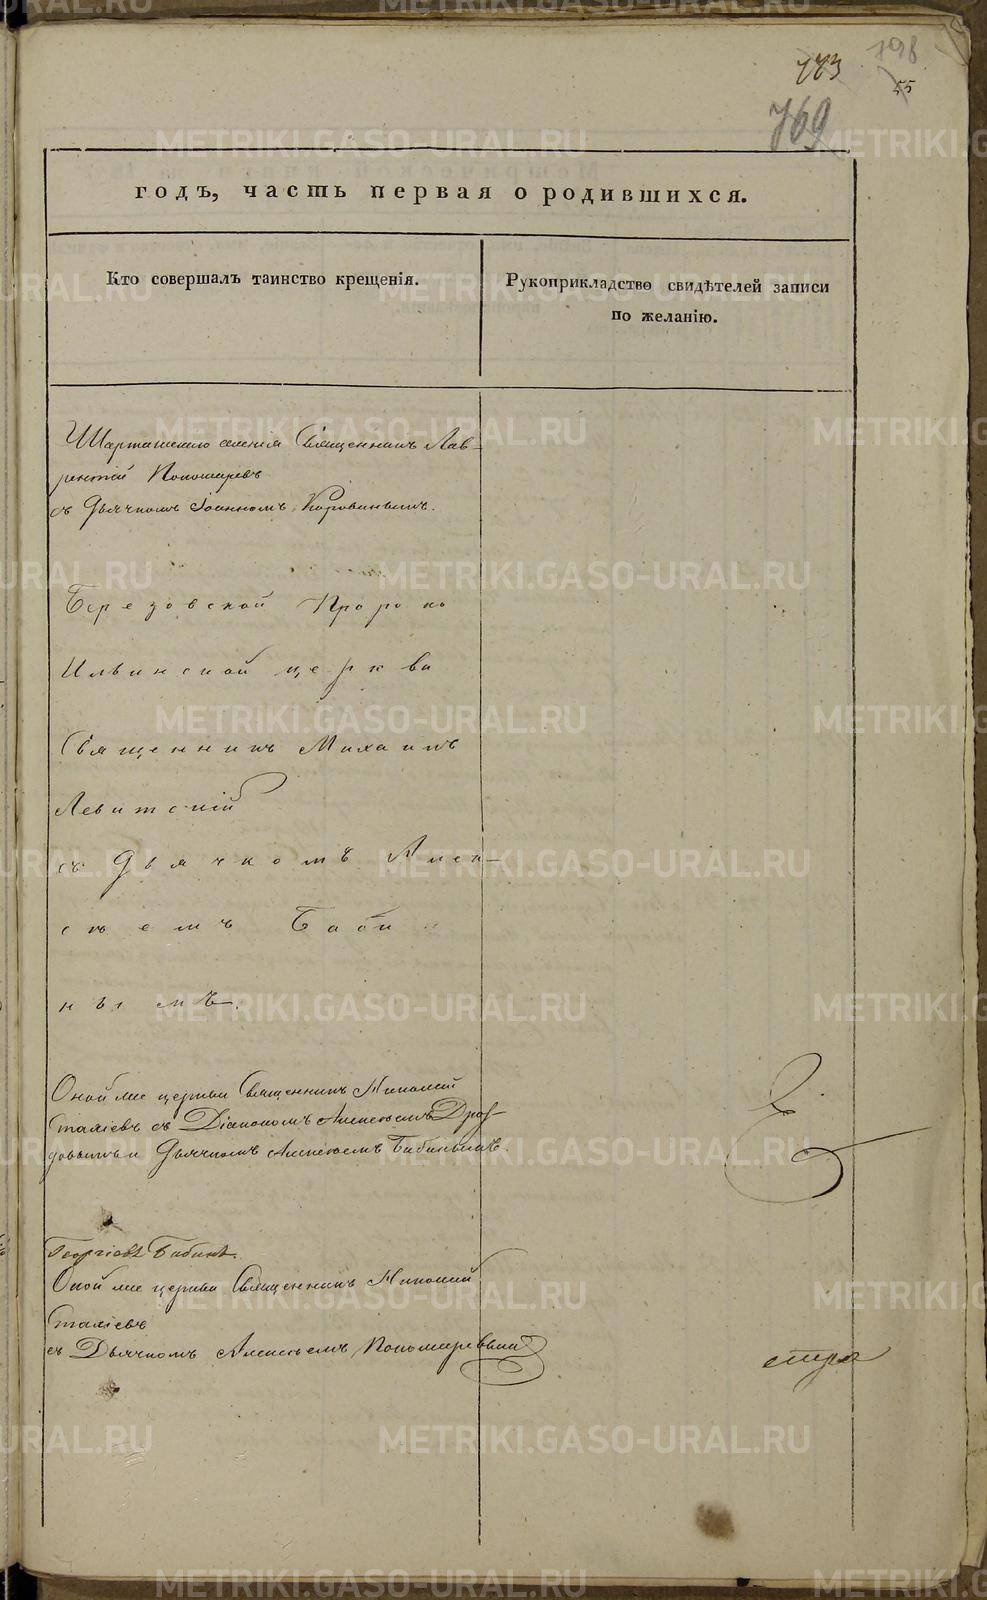 773
198
55
769
годъ, часть первая о родившихся.
Кто совершалъ таинство крещенія.
Рукоприкладство свидѣтелей записи
по желанію.
Шарташскаго селенія Священникъ Лав-
рентій Пономаревъ
съ Дьячкомъ Іоанномъ Коровинымъ.
Березовской Пророко
Ильинской церкви
Священникъ Михаилъ
Левитскій
съ Дьячкомъ Алек-
сѣемъ Баби
нымъ.
Оной же церкви Священникъ Николай
съ Діакономъ Алексѣемъ Дроз-
довымъ и Дьячкомъ Алексѣемъ Бабинымъ.
Георгіевъ Бабинъ.
Оной же церкви Священникъ Николай
съ Дьячкомъ Алексѣемъ Пономаревымъ
стра
METRIKI.GASO-URAL.RU